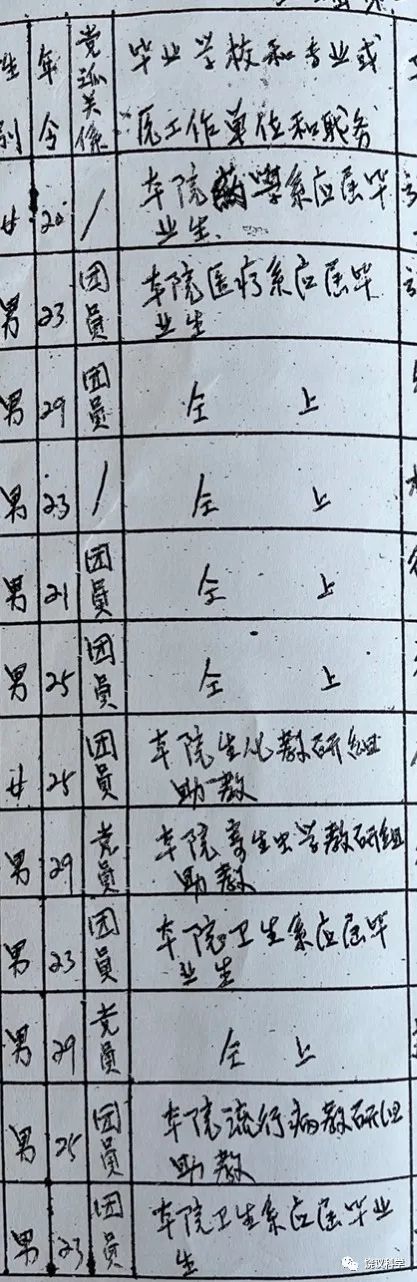 性 年 党派关係 毕业学校和专业或
别 令 原工作单位和职务
女 20 / 本院药学系应届毕
业生.
男 23 团員 本院医疗系应届毕
业生
男 29 团員 仝 上
男 23 / 仝 上
男 21 团員 仝 上
男 25 团員 仝 上
女 25 团員 本院生化教研组
助教
男 29 党員 本院寄生虫学教研组
助教
男 23 团員 本院卫生系应届毕
业生
男 29 党員 仝 上
男 25 团員 本院流行病教研组
助教
男 23 团員 本院卫生系应届毕业
生
饶议科学